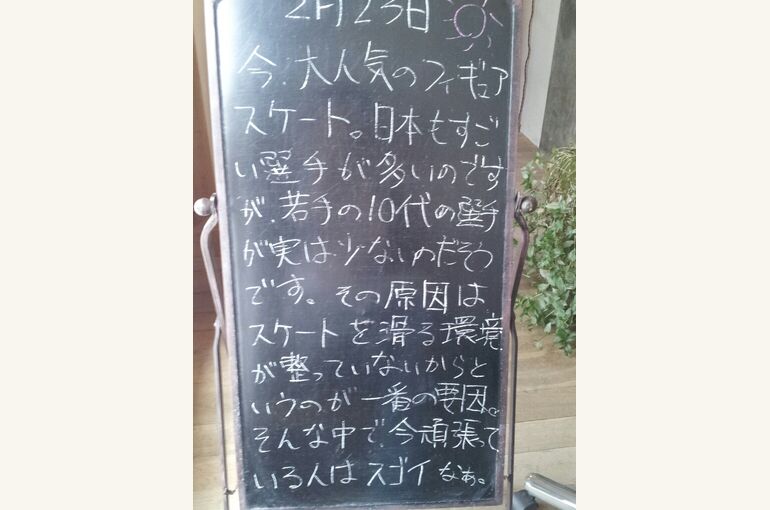 2月23日
今、大人気のフィギュア
スケート。日本もすご
い選手が多いのです
が、若手の10代の選手
が実は少ないのだそう
です。その原因は
スケートを滑る環境
が整っていないからと
いうのが一番の要因。
そんな中で、今頑張って
いる人はスゴイなぁ。